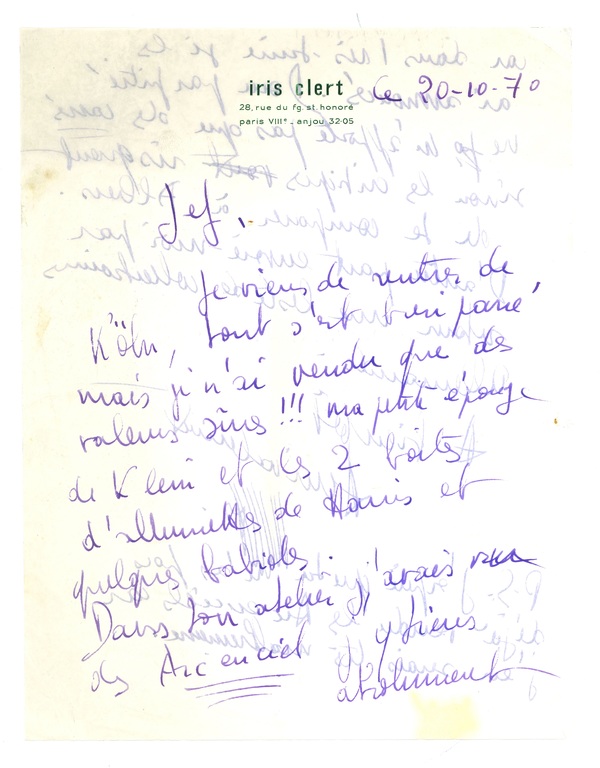 iris clert
28, rue du fg. st. honoré
paris VIIIᵉ - anjou 32-05
le 20-10-70
Jef,
Je viens de rentrer de
Köln, tout s'est bien passé,
mais j' n'ai vendu que des
valeurs sûres !!! ma petite éponge
de Klein et les 2 boîtes
d'allumettes de Harris et
quelques babioles. j'avais
Dans ton atelier j'
des Arc en ciel y tiens
absolument